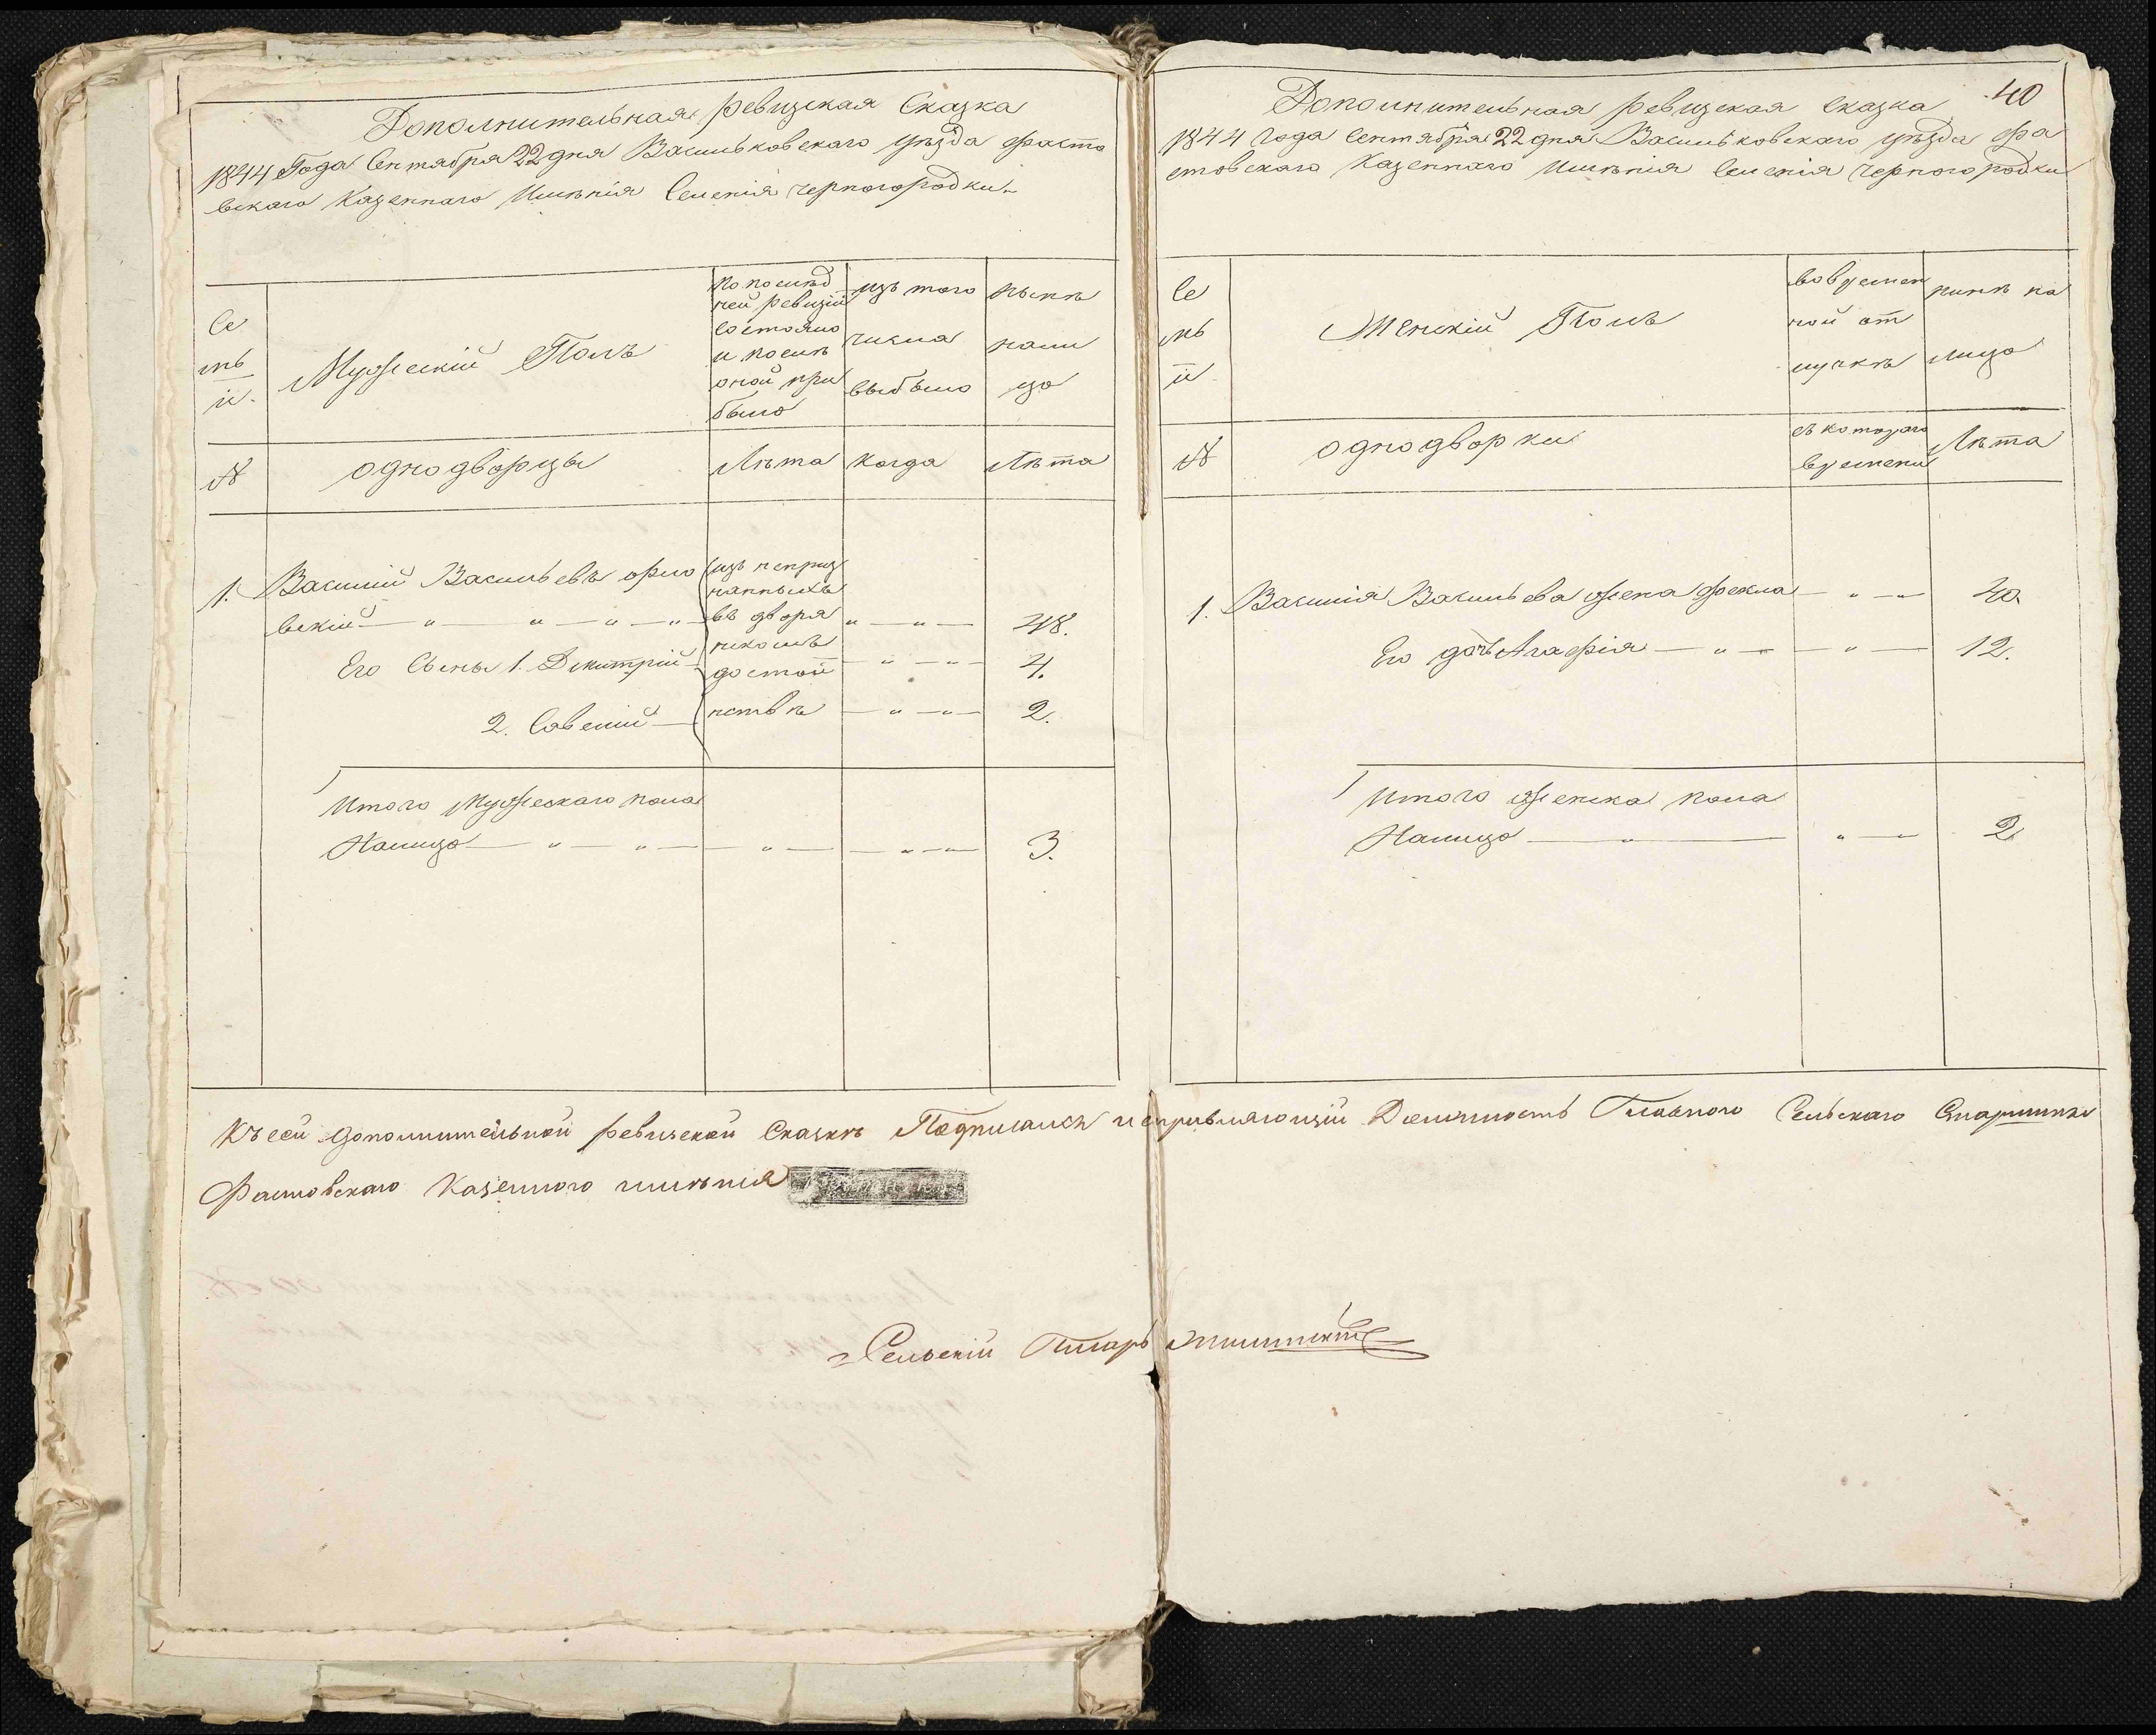 Дополнительная ревизская Сказка
1844 Года Сентября 22 дня Васильковскаго уѣзда Фасто
вскаго Казеннаго Имѣнія Селенія Черногородки
Се
мь
и.
Мужескій Полъ
по послѣд
ней ревизіи
состояло
и послѣ
оной при
было
изъ того
числа
выбыло
нынѣ
нали
цо
№
однодворцы
Лѣта
когда
Лѣта
1. Василий Васильевъ Орло
вскій — „ — „ — „ — „
изъ неприз
нанныхъ
въ дворя
нскомъ
достои
нствѣ
„ — „ — 48.
Его Сыны 1. Дмитрій — „ — „ — 4.
2. Савелий — — „ — „ — 2.
Итого Мужескаго пола
Налицо — „ — „ — „ — „ — 3.
40
Дополнительная ревизская сказка
1844 года Сентября 22 дня Васильковскаго уѣзда Фа
стовскаго Казеннаго Имѣнія Селенія Черногородки
Се
мь
и
Женскій Полъ
во времен
ной от
лучкѣ
нынѣ на
лицо
№
однодворки
съ котораго
времени
Лѣта
1. Василія Васильева жена Фекла — „ — 40.
Его дочь Агафія — „ — — „ — 12.
Итого женска пола
Налицо — „ — „ — 2.
Къ сей дополнительной ревизской Сказкѣ Подписался исправляющій Должность Главнаго Сельскаго Старшины
Фастовскаго Казенного имѣнія
Сельскій Писарь